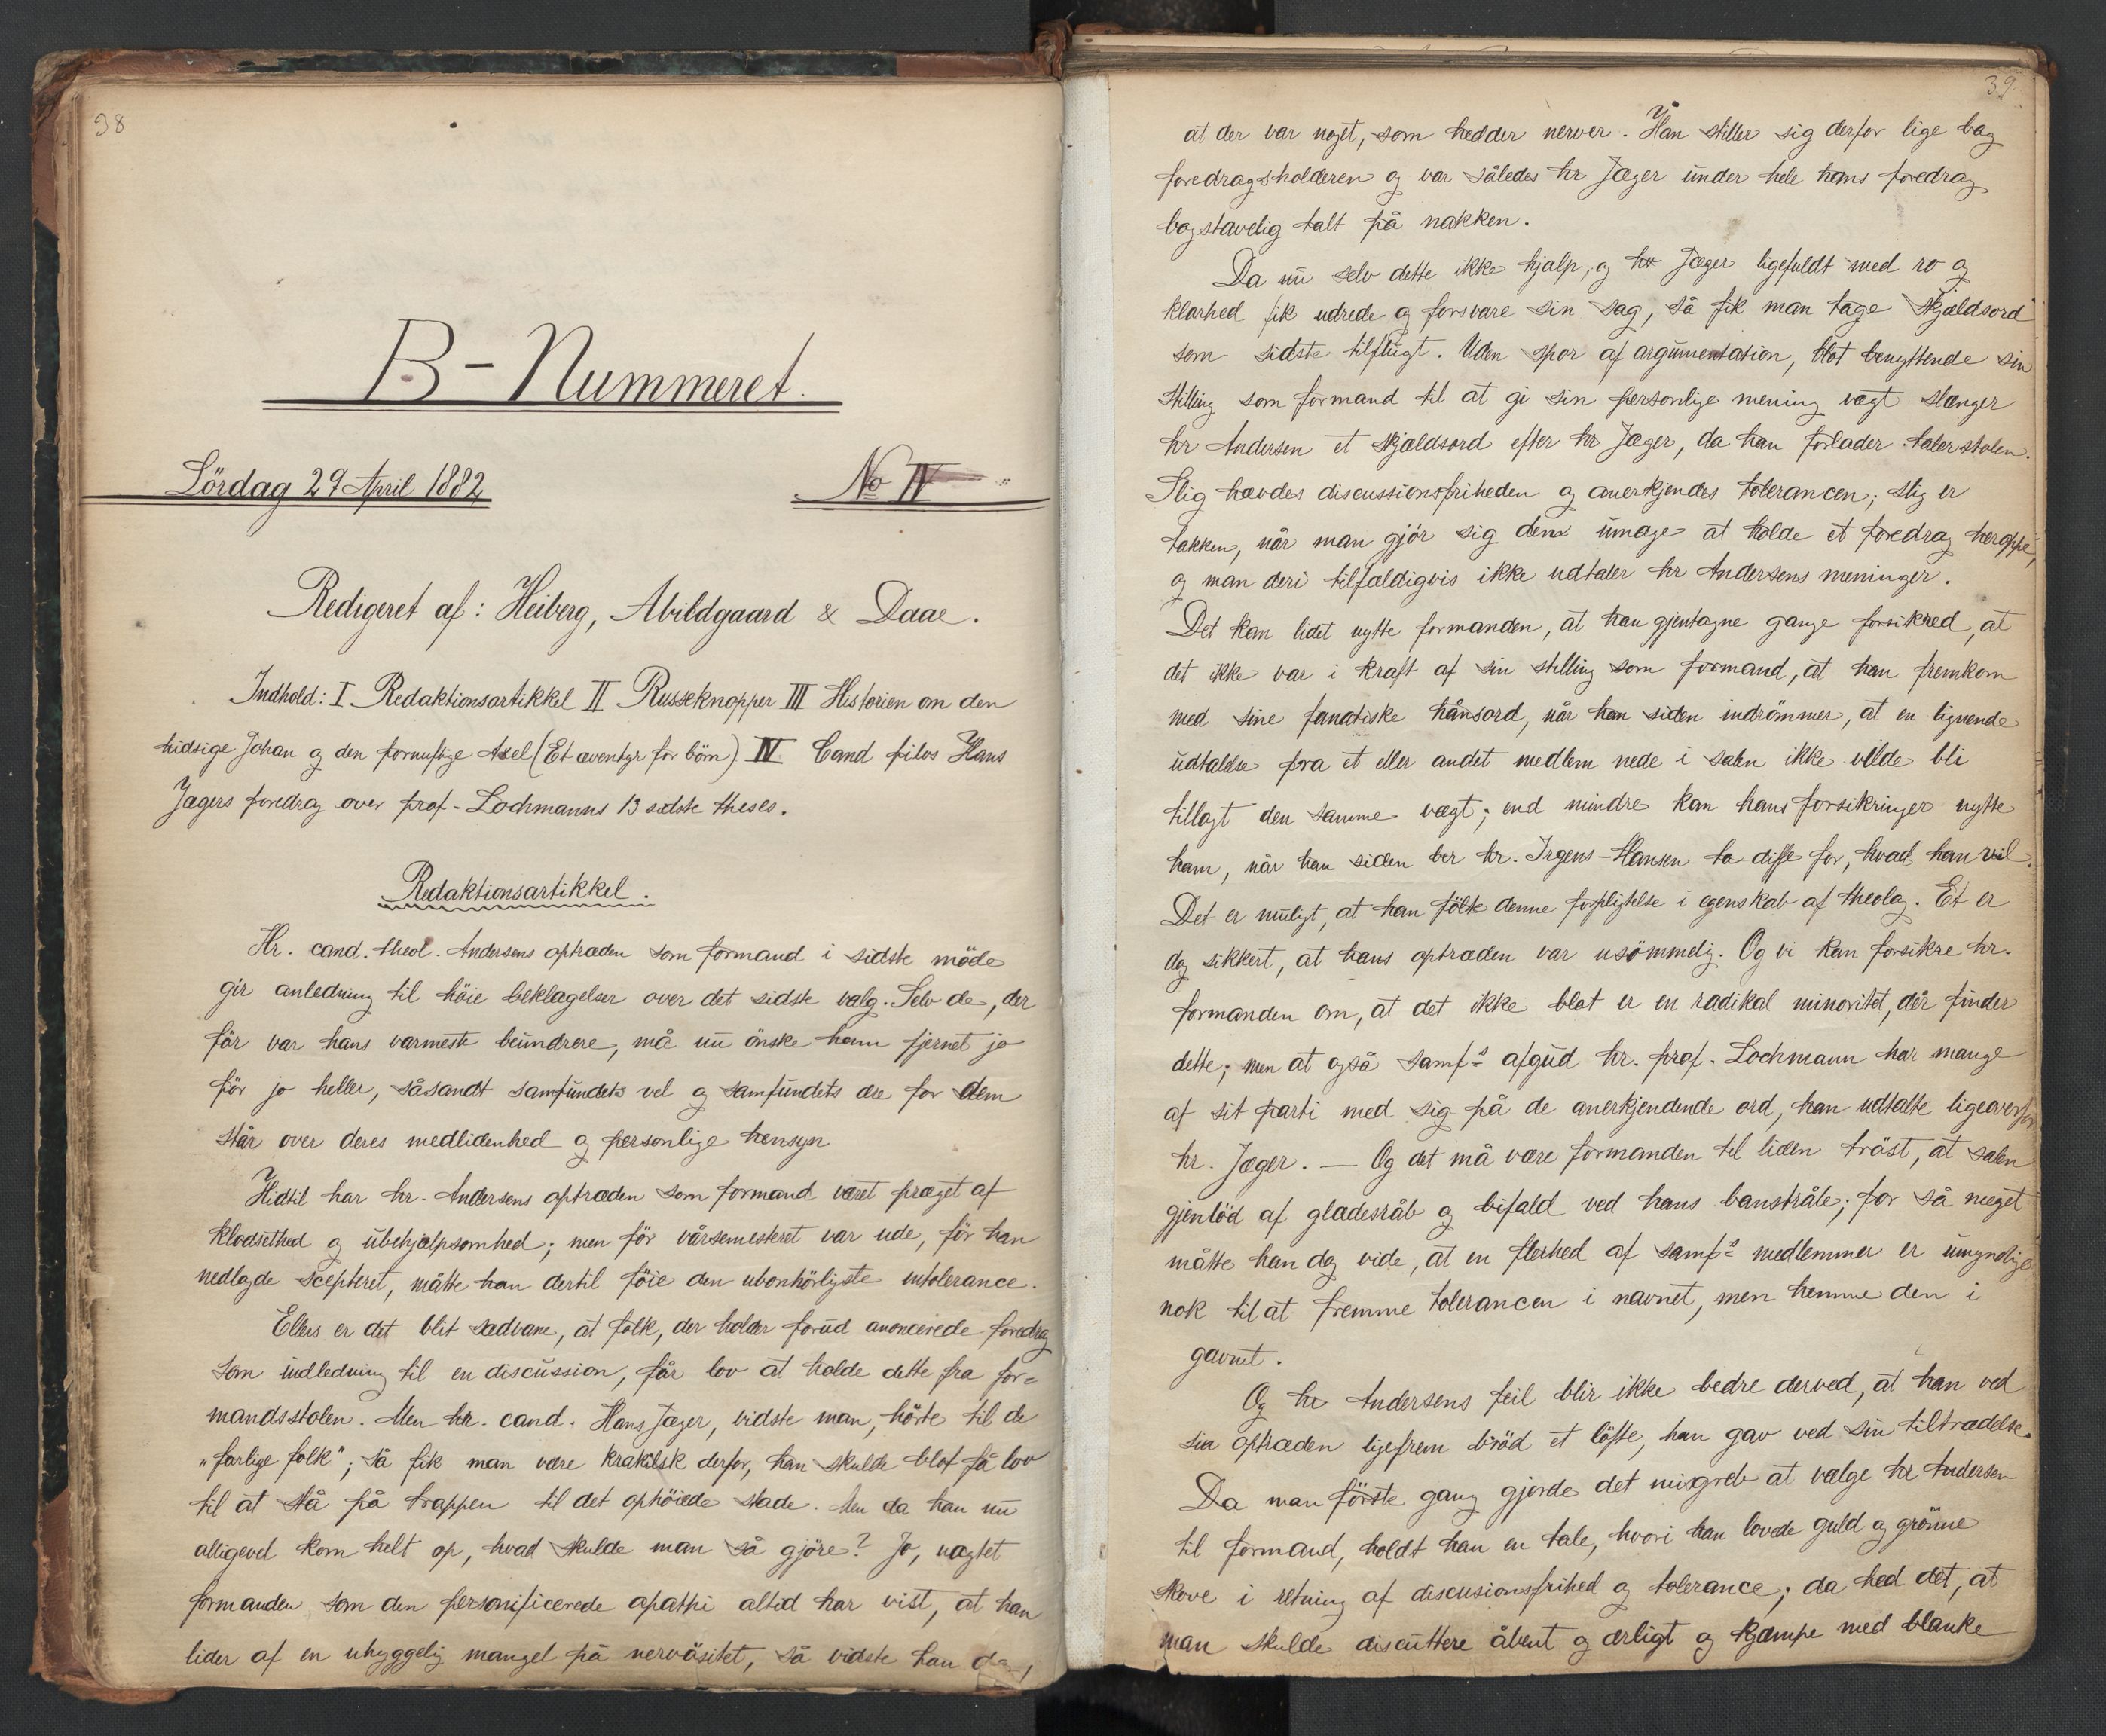 38
B-Nummeret.
Lördag 29 April 1882
No IV
Redigeret af: Heiberg, Abildgaard & Daae.
Indhold: I Redaktionsartikkel II Russeknopper III Historien om den
hidsige Johan og den fornuftige Axel (Et æventyr for börn) IV. Cand filos Hans
Jægers foredrag over prof. Lochmanns 13 sidste theses.
Redaktionsartikkel.
Hr. cand. theol. Andersens optræden som formand i sidste möde
gir anledning til höie beklagelser over det sidste valg. Selv de, der
för var hans varmeste beundrere, må nu önske ham fjernet jo
för jo heller, såsandt samfundets vel og samfundets ære for dem
står over deres medlidenhed og personlige hensyn
Hidtil har hr. Andersens optræden som formand været præget af
klodsethed og ubehjælpsomhed; men för vårsemesteret var ude, för han
nedlagde scepteret, måtte han dertil föie den ubonhörligste intolerance.
Ellers er det blit sædvane, at folk, der holder forud anoncerede foredrag
som indledning til en discussion, får lov at holde dette fra for=
mandsstolen. Men hr. cand. Hans Jæger, vidste man, hörte til de
"farlige folk"; så fik man være krakilsk derfor, han skulde blot få lov
til at stå på trappen til det ophöiede stade. Men da han nu
alligevel kom helt op, hvad skulde man så gjöre? Jo, uagtet
formanden som den personificerede apathi altid har vist, at han
lider af en uhyggelig mangel på nervösitet, så vidste han dog,
39.
at der var noget, som hedder nerver. Han stiller sig derfor lige bag
foredragsholderen og var således hr Jæger under hele hans foredrag
bogstavelig talt på nakken.
Da nu selv dette ikke hjalp, og hr Jæger ligefuldt med ro og
klarhed fik udrede og forsvare sin sag, så fik man tage skjældsord
som sidste tilflugt. Uden spor af argumentation, blot benyttende sin
stilling som formand til at gi sin personlige mening vægt slænger
hr Andersen et skjældsord efter hr Jæger, da han forlader talerstolen.
Slig hævdes discussionsfriheden og anerkjendes tolerancen; slig er
takken, når man gjör sig den umage at holde et foredrag heroppe,
og man deri tilfældigvis ikke udtaler hr Andersens meninger.
Det kan lidet nytte formanden, at han gjentagne gange forsikred, at
det ikke var i kraft af sin stilling som formand, at han fremkom
med sine fanatiske hånsord, når han siden indrömmer, at en lignende
udtalelse fra et eller andet medlem nede i salen ikke vilde bli
tillagt den samme vægt; end mindre kan hans forsikringer nytte
ham, når han siden ber hr. Irgens-Hansen ta disse for, hvad han vil.
Det er muligt, at han fölte denne forpligtelse i egenskab af theolog. Et er
dog sikkert, at hans optræden var usömmelig. Og vi kan forsikre hr.
formanden om, at det ikke blot er en radikal minoritet, der finder
dette; men at også samfs afgud hr. prof. Lochmann har mange
af sit parti med sig på de anerkjendende ord, han udtalte ligeoverfor
hr. Jæger. — Og det må være formanden til liden tröst, at salen
gjenlöd af glædesråb og bifald ved hans banstråle; for så meget
måtte han dog vide, at en flerhed af samfs medlemmer er umyndige
nok til at fremme tolerancen i navnet, men hemme den i
gavnet.
Og hr Andersens feil blir ikke bedre derved, at han ved
sin optræden ligefrem bröd et löfte, han gav ved sin tiltrædelse.
Da man förste gang gjorde det misgreb at vælge hr Andersen
til formand, holdt han en tale, hvori han lovede guld og grönne
skove i retning af discusionsfrihed og tolerance; da hed det, at
man skulde discuttere åbent og ærligt og kjæmpe med blanke